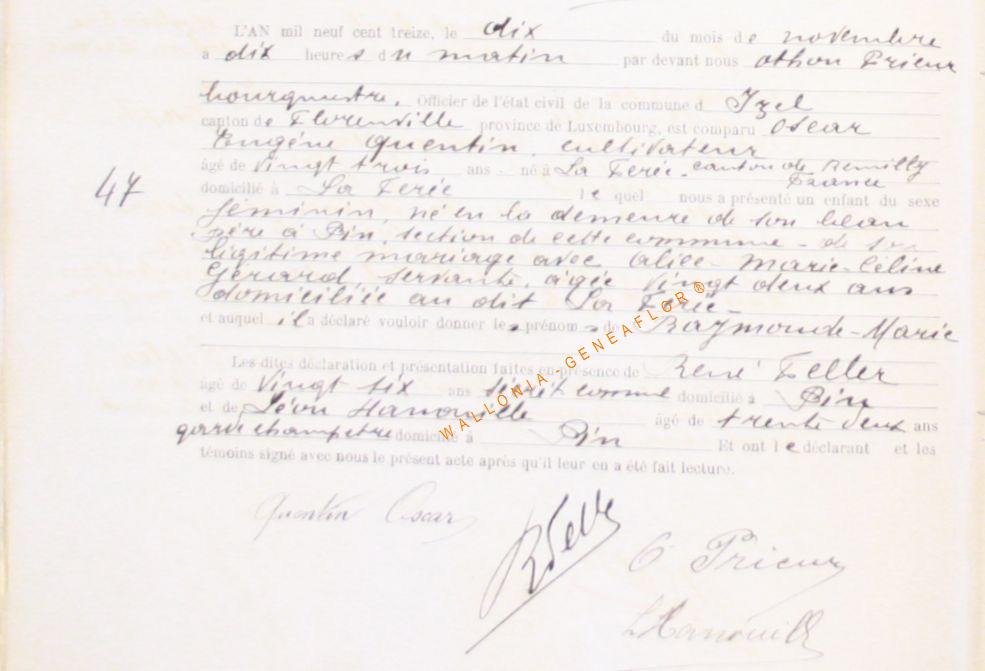 L'AN mil neuf cent treize, le dix du mois de novembre
a dix heures du matin par devant nous Othon Prieur
bourgmestre, Officier de l'état civil de la commune d Izel
canton de Florenville province de Luxembourg, est comparu Oscar
Eugène Quentin, cultivateur
âgé de vingt trois ans né à La Ferée canton de Rumilly
France
47
domicilié à La Ferée lequel nous a présenté un enfant du sexe
féminin, né en la demeure de son beau
père à Pin, section de cette commune - de son
légitime mariage avec Alice-Marie-Céline
Gérard servante, âgée vingt deux ans
domiciliée au dit La Ferée -
et auquel il a déclaré vouloir donner les prénoms de Raymonde-Marie
Les dites déclaration et présentation faites en présence de René Feller
âgé de vingt six ans domicilié à Pin
et de Léon Hanouille âgé de trente deux ans
garde champêtre domicilié à Pin Et ont le déclarant et les
témoins signé avec nous le présent acte après qu'il leur en a été fait lecture.
WALLONIA-GENEAFLOR®
Quentin Oscar
RFeller
O Prieur
LHanouille